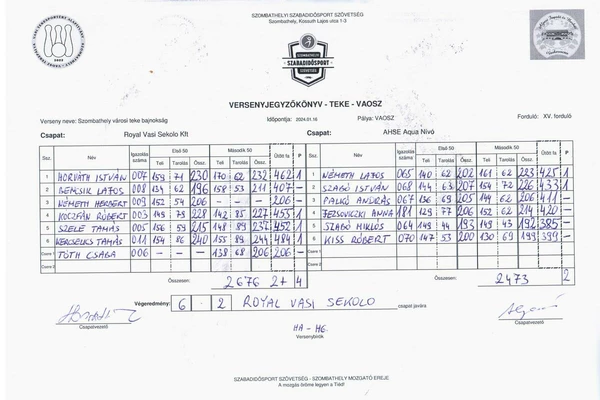 SZOMBATHELYI SZABADIDŐSPORT SZÖVETSÉG
Szombathely, Kossuth Lajos utca 1-3
SZOMBATHELYI
SZABADIDŐSPORT
SZÖVETSÉG
VERSENYJEGYZŐKÖNYV - TEKE - VAOSZ
Verseny neve: Szombathely városi teke bajnokság Időpontja: 2024.01.16 Pálya: VAOSZ Forduló: XV. forduló
Csapat: Royal Vasi Sekolo Kft Csapat: AHSE Aqua Nívó
Ssz. Név Igazolás száma Első 50 Második 50 Ütött fa P Ssz. Név Igazolás száma Első 50 Második 50 Ütött fa P
Teli Tarolás Össz. Teli Tarolás Össz. Teli Tarolás Össz. Teli Tarolás Össz.
1 HORVÁTH ISTVÁN 007 159 71 230 170 62 232 462 1 1 NÉMETH LAJOS 065 140 62 202 161 62 223 425 1
2 BENCSIK LAJOS 008 134 62 196 158 53 211 407 - 2 SZABÓ ISTVÁN 068 144 63 207 154 72 226 433 1
3 NÉMETH HERBERT 009 152 54 206 - - - 206 - 3 PALKÓ ANDRÁS 067 136 69 205 144 62 206 411 -
4 KOCZFÁN RÓBERT 003 75 228 142 85 227 455 1 4 JEZSOVICZKI ANNA 181 129 77 206 152 62 214 420 -
5 SZELE TAMÁS 005 156 59 215 148 89 237 452 1 5 SZABÓ MIKLÓS 064 149 44 193 149 43 192 385 -
6 KERCSELICS TAMÁS 011 154 86 240 155 89 244 484 1 6 KISS RÓBERT 070 147 53 200 130 69 199 399 -
Csere 1 TÓTH CSABA 006 - - - 138 68 206 206 - Csere 1
Csere 2 Csere 2
Összesen: 2676 2+ 4 Összesen: 2473 2
Végeredmény: 6 - 2 ROYAL VASI SEKOLO csapat javára
Csapatvezető HA - HG Csapatvezető
Versenybírók
SZABADIDŐSPORT SZÖVETSÉG - SZOMBATHELY MOZGATÓ EREJE
A mozgás öröme legyen a Tiéd!